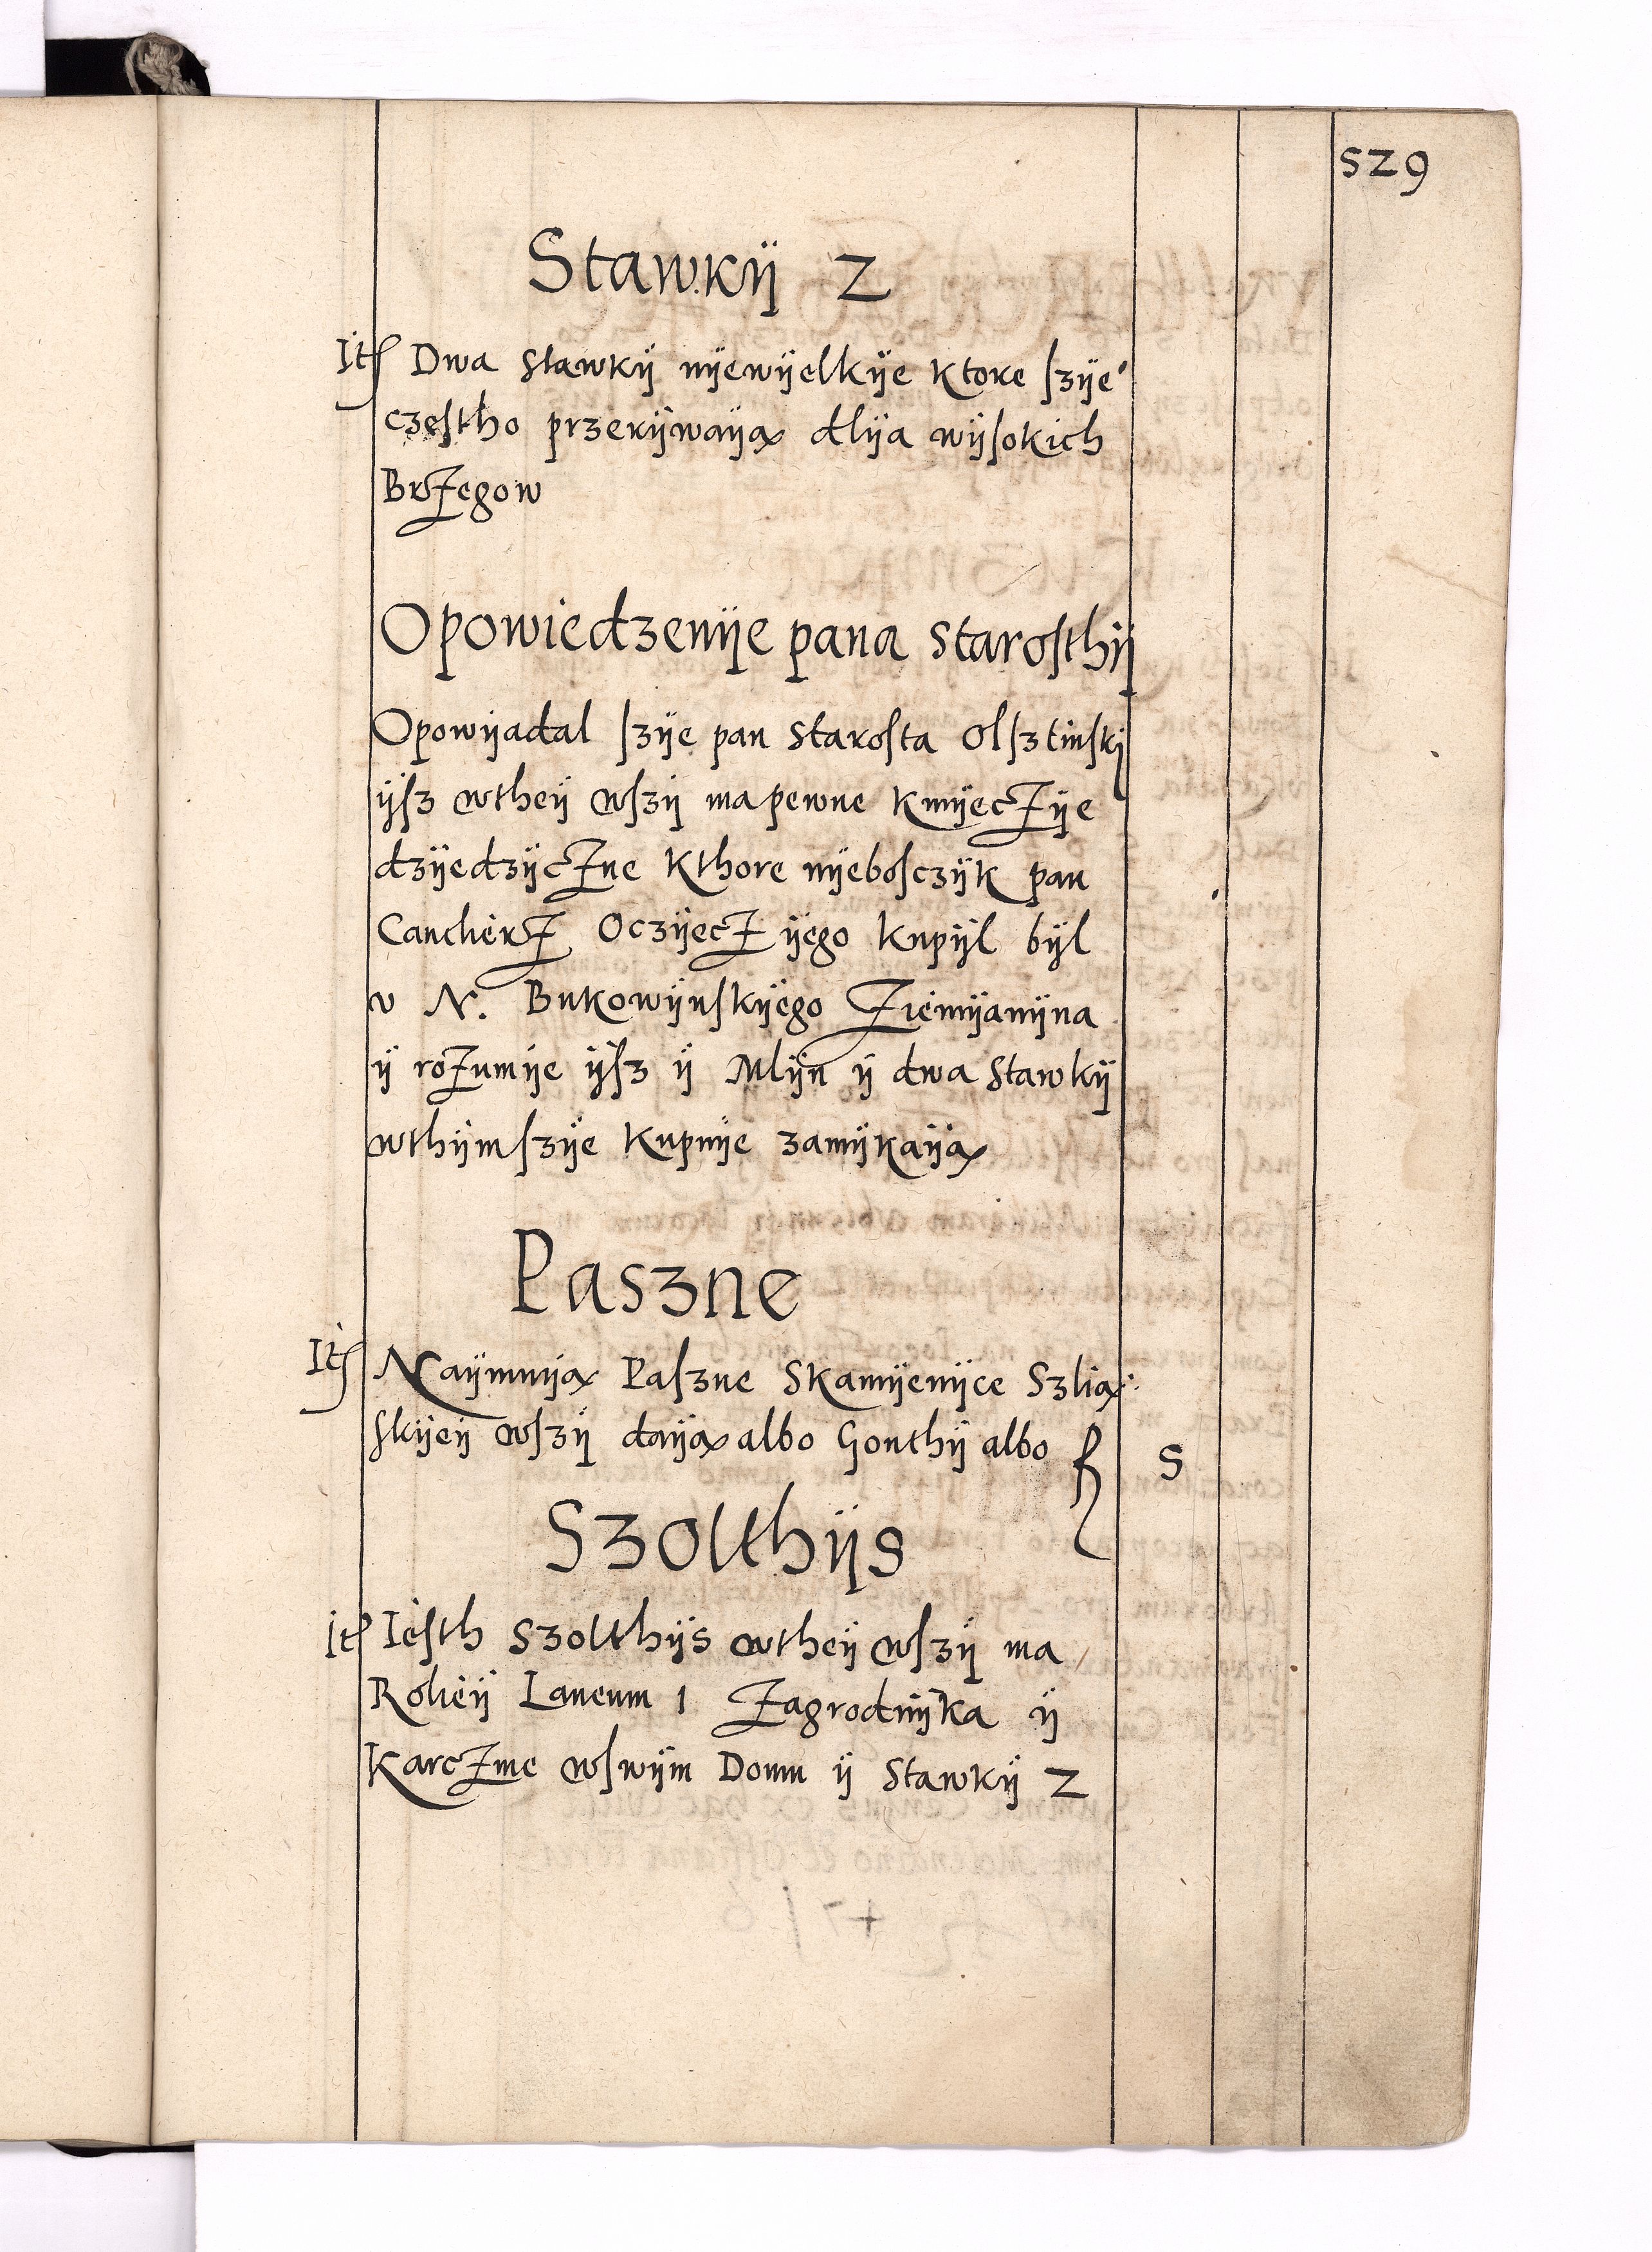 529
Stawkÿ 2
Itꝭ Dwa Stawkÿ nÿewÿelkÿe Ktore ſzÿe
czeſtho przerÿwaÿą dlÿa wÿſokich
Brżegow
Opowiedzenÿe pana Staroſthÿ
Opowÿadal ſzÿe pan Staroſta Olſztinſkÿ
ÿſz wtheÿ wſzÿ ma pewne Kmÿeczÿe
dzÿedzÿczne Kthore nÿeboſczÿk pan
Cancherz Oczÿecz ÿego Kupÿl bÿl
v N. Bukowÿnſkÿego Ziemÿanÿna
ÿ rozumÿe ÿſz ÿ Mlÿn ÿ dwa Stawkÿ
wthÿm ſzÿe Kupnÿe zamÿkaÿą
Paszne
Itꝭ Naÿmuÿą Paſzne Skamÿenÿce Szlią:
ſkÿeÿ wſzÿ daÿą albo Gonthÿ albo fl 5
Szolthÿs
Itꝭ Ieſth Szolthÿs wtheÿ wſzÿ ma
Rolieÿ Laneum 1 Zagrodnÿka ÿ
Karczme wſwÿm Domu ÿ Stawkÿ 2